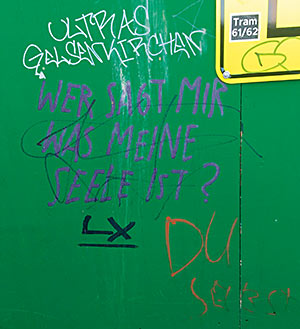 ULTRAS
GELSENKIRCHEN
Tram
61/62
WER SAGT MIR
WAS MEINE
SEELE IST?
DU